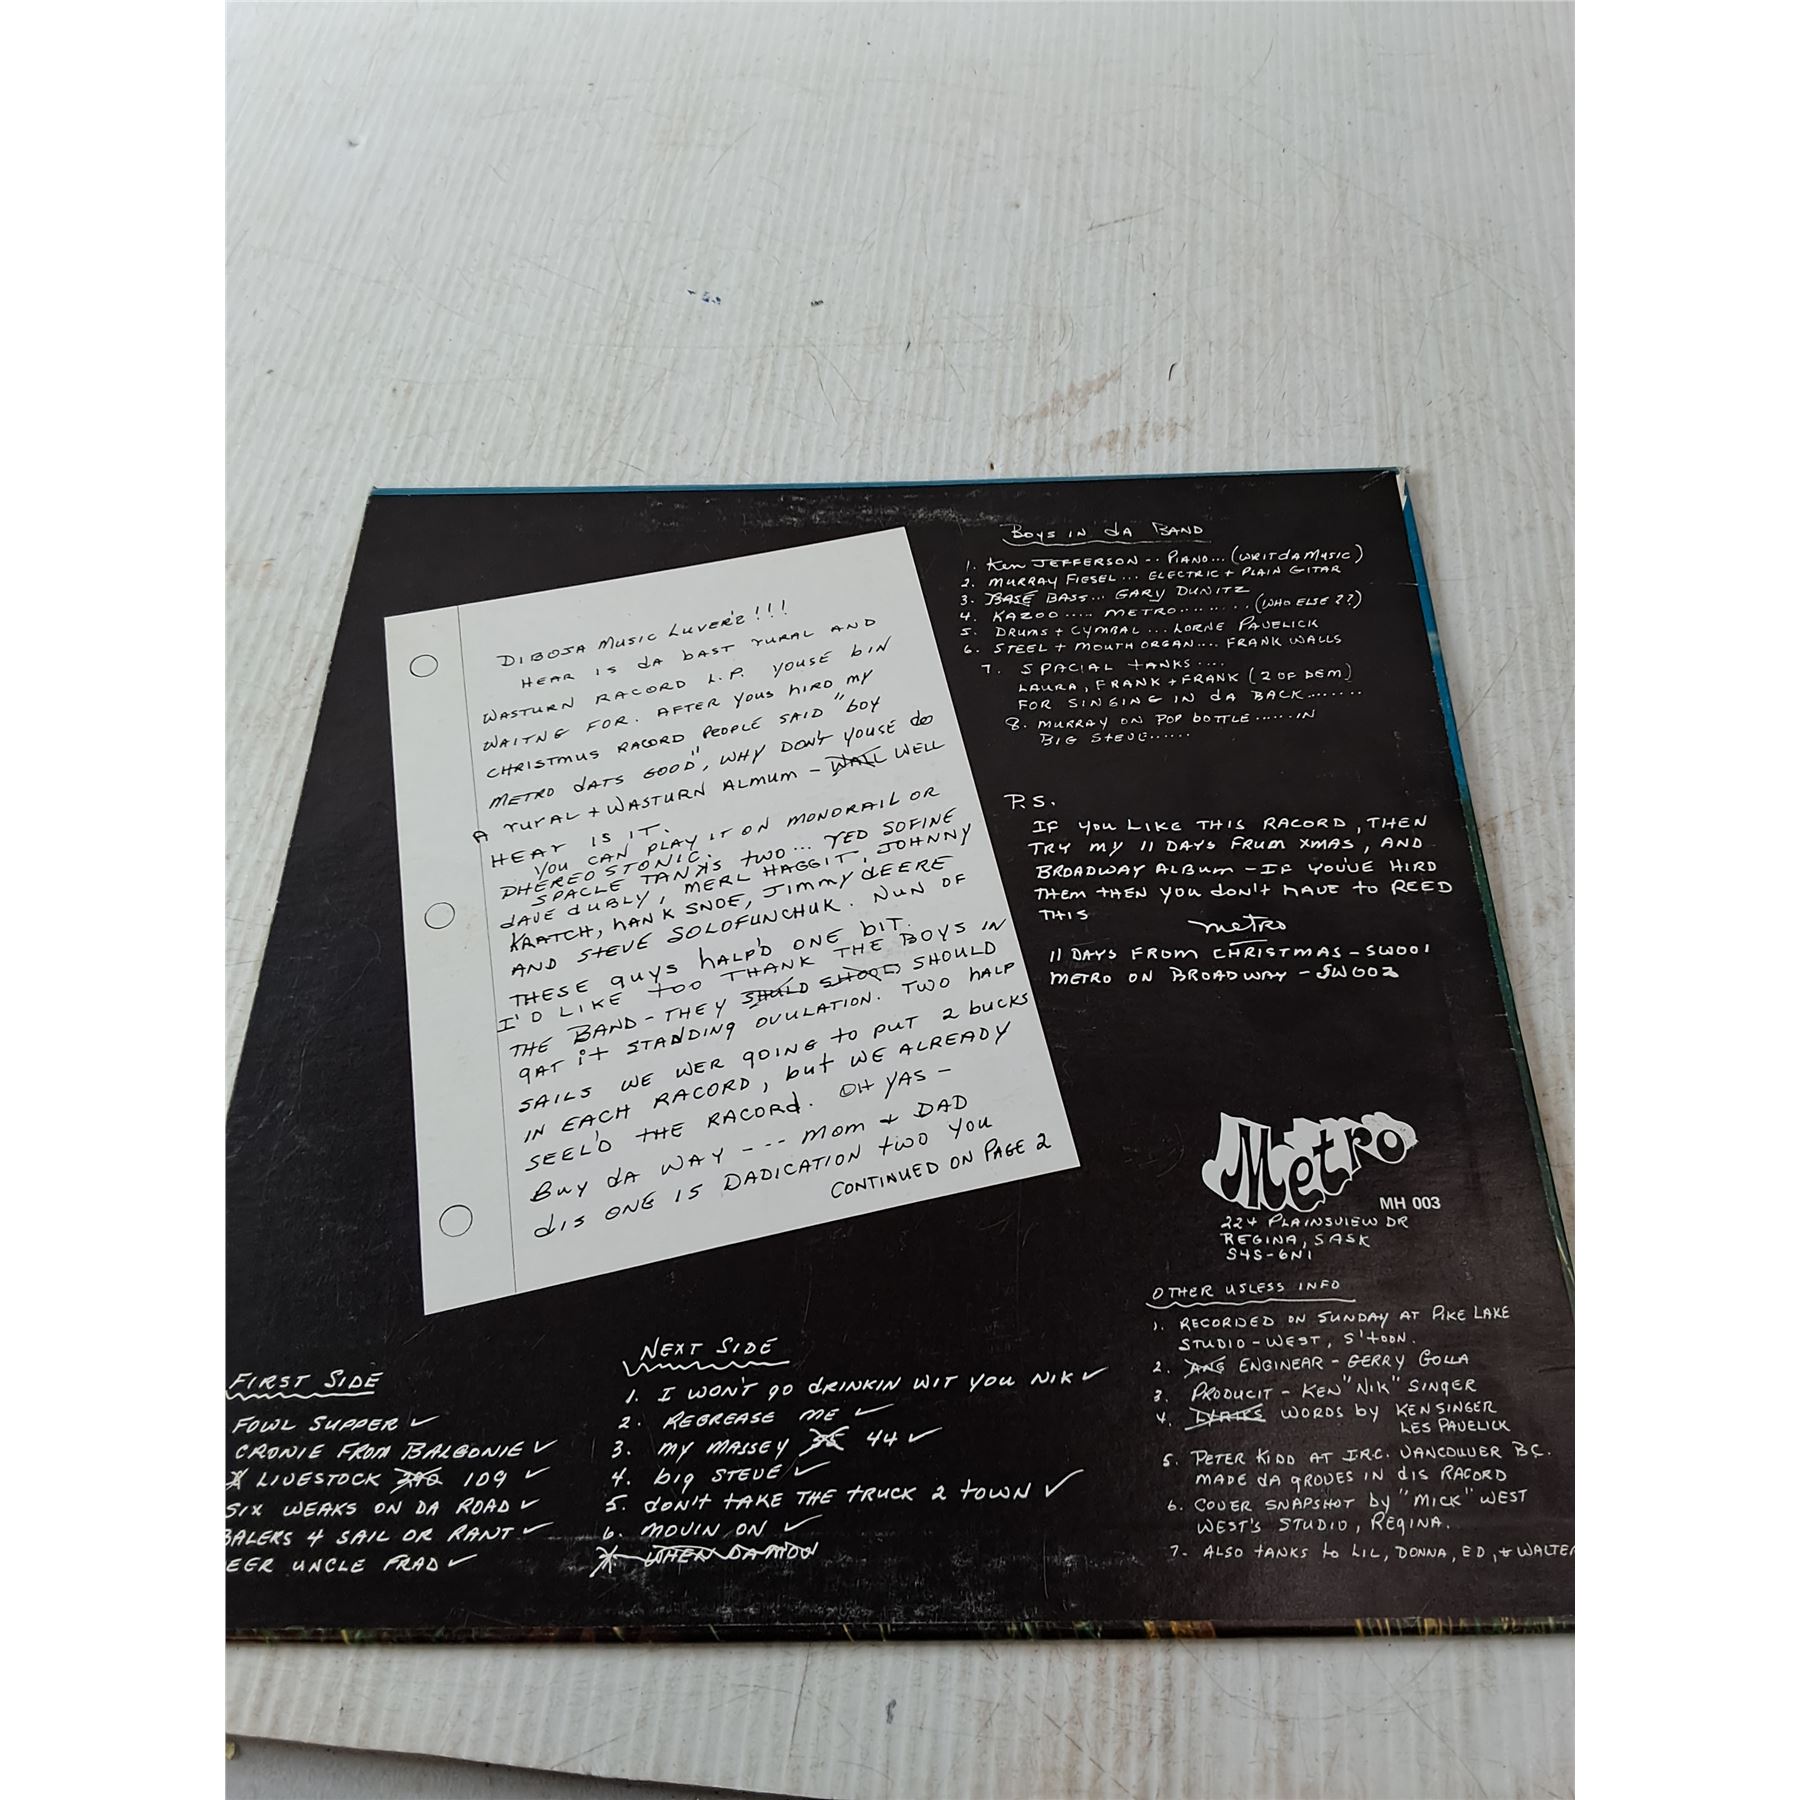 DIBOJA MUSIC LUVER'Z!!!
HEAR IS da bAST rURAL AND
WASTURN RACORD L.P. YOUSE bIN
WAITNG FOR. AFTER YOUS hIRD MY
CHRISTMUS RACORD PEOPLE SAID "bOY
METRO dATS GOOD", WHY DON'T YOUSE dO
A rURAL + WASTURN ALMUM - WALL WELL
HEAR IS IT.
YOU CAN PLAY IT ON MONORAIL OR
DHEREOSTONIC.
SPACLE TANKS TWO... TED SOFINE
dAVE dUbLY, MERL HAGGIT, JOHNNY
KRATCH, hANK SNOE, JIMMY dEERE
AND STEVE SOLOFUNCHUK. NUN OF
THESE gUYS hALP'D ONE bIT.
I'D LIKE TOO THANK THE BOYS IN
THE BAND - THEY SHOULD
gAT it STANDING OVULATION. TWO hALP
SAILS WE WER gOING to PUT 2 bUCKS
IN EACH RACORD, bUt WE ALREADY
SEEL'D tHE RACORd. OH YAS -
BUY dA WAY --- MOM & DAD
dIS ONE IS DADICATION tWO YOU
CONTINUED ON PAGE 2
BOYS IN dA BAND
1. KEN JEFFERSON.. PIANO... (WRITDAMUSIC)
2. MURRAY FIESEL... ELECTRIC + PLAIN GITAR
3. BASE BASS... GARY DUNITZ
4. KAZOO..... METRO........ (WHO ELSE??)
5. DRUMS + CYMBAL... LORNE PAVELICK
6. STEEL + MOUTH ORGAN.... FRANK WALLS
7. SPACIAL tANKS....
LAURA, FRANK + FRANK (2 OF DEM)
FOR SINGING IN dA BACK........
8. MURRAY ON POP bOTTLE......IN
BIG STEVE......
P.S.
IF YOU LIKE THIS RACORD, THEN
TRY MY 11 DAYS FRUM XMAS, AND
BROADWAY ALBUM - IF YOU'VE HIRD
THEM tHEN YOU dON't hAVE to REED
tHIS
metro
11 DAYS FROM CHRISTMAS - SW001
METRO ON BROADWAY - SW002
Metro
MH 003
224 PLAINSVIEW DR
REGINA, SASK
S4S-6N1
OTHER USLESS INFO
1. RECORDED ON SUNDAY AT PIKE LAKE
STUDIO-WEST, S'tOON.
2. ANG ENGINEAR - GERRY GOLLA
3. PRODUCIT - KEN "NIK" SINGER
4. LYRIKS WORDS bY KEN SINGER
LES PAVELICK
5. PETER KIDD AT I.R.C. VANCOUVER B.C.
MADE dA gROVES IN dIS RACORD
6. COVER SNAPSHOT bY "MICK" WEST
WEST'S STUDIO, REgINA.
7. ALSO tANKS to LIL, DONNA, ED, & WALTER
FIRST SIDE
FOWL SUPPER ✓
CRONIE FROM BALGONIE ✓
LIVESTOCK 109 ✓
SIX WEAKS ON DA ROAD ✓
BALERS 4 SAIL OR RANT ✓
EER UNCLE FRAD ✓
NEXT SIDE
1. I WON'T gO dRINKIN WIT YOU NIK ✓
2. REGREASE ME ✓
3. MY MASSEY 44 ✓
4. bIg STEVE ✓
5. dON't tAKE THE tRUCK 2 tOWN ✓
6. MOVIN ON ✓
WHEN DA MOW